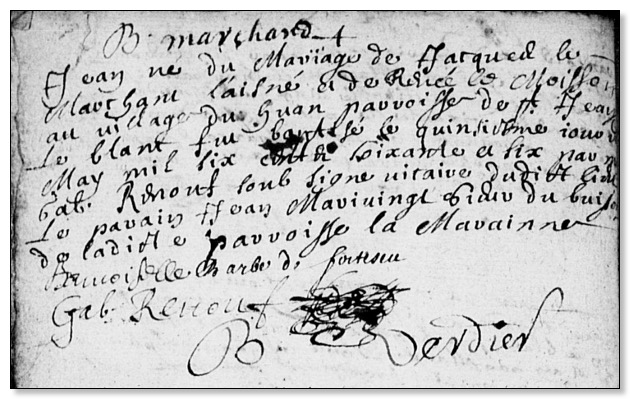 B. marchand
Jean né du Mariiage de Jacques le
Marchant l'aisné et de Renée le Moisson
au village du huan parroisse de st Jean
Le blant fut baptisé le quinsiesme iour
May mil six cents soixante et six par
Gab. Renouf soub signé vicaire dudict lieu
Le parain Jean Marivingt sieur du buis
de laditte parroisse la Marainne
Damoiselle Barbe de
Gab. Renouf
B Verdier